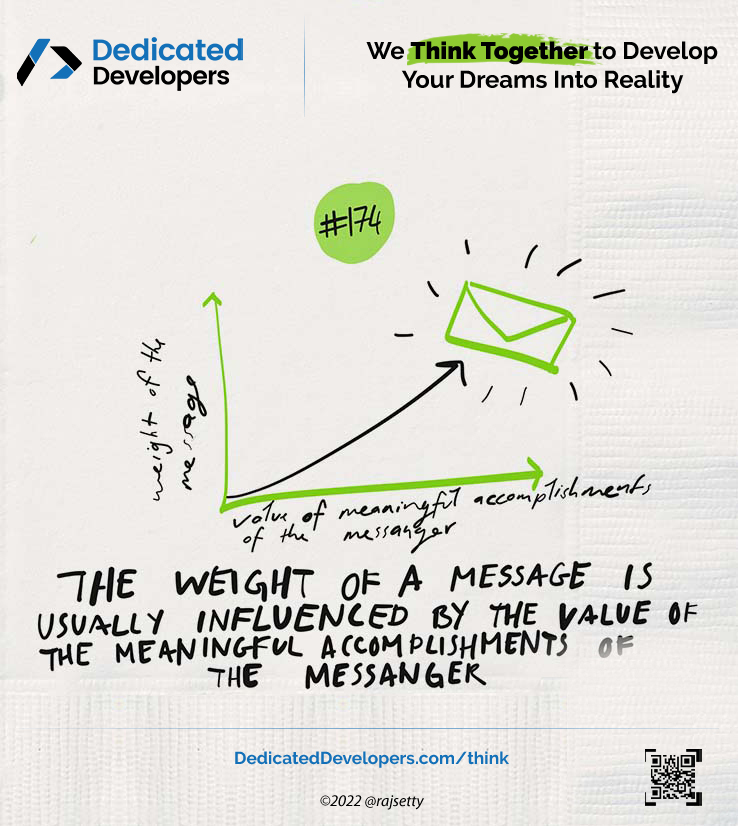 Dedicated
Developers
We Think Together to Develop
Your Dreams Into Reality
#174
weight of the
message
value of meaningful accomplishments
of the messanger
THE WEIGHT OF A MESSAGE IS
USUALLY INFLUENCED BY THE VALUE OF
THE MEANINGFUL ACCOMPLISHMENTS OF
THE MESSANGER
DedicatedDevelopers.com/think
©2022 @rajsetty